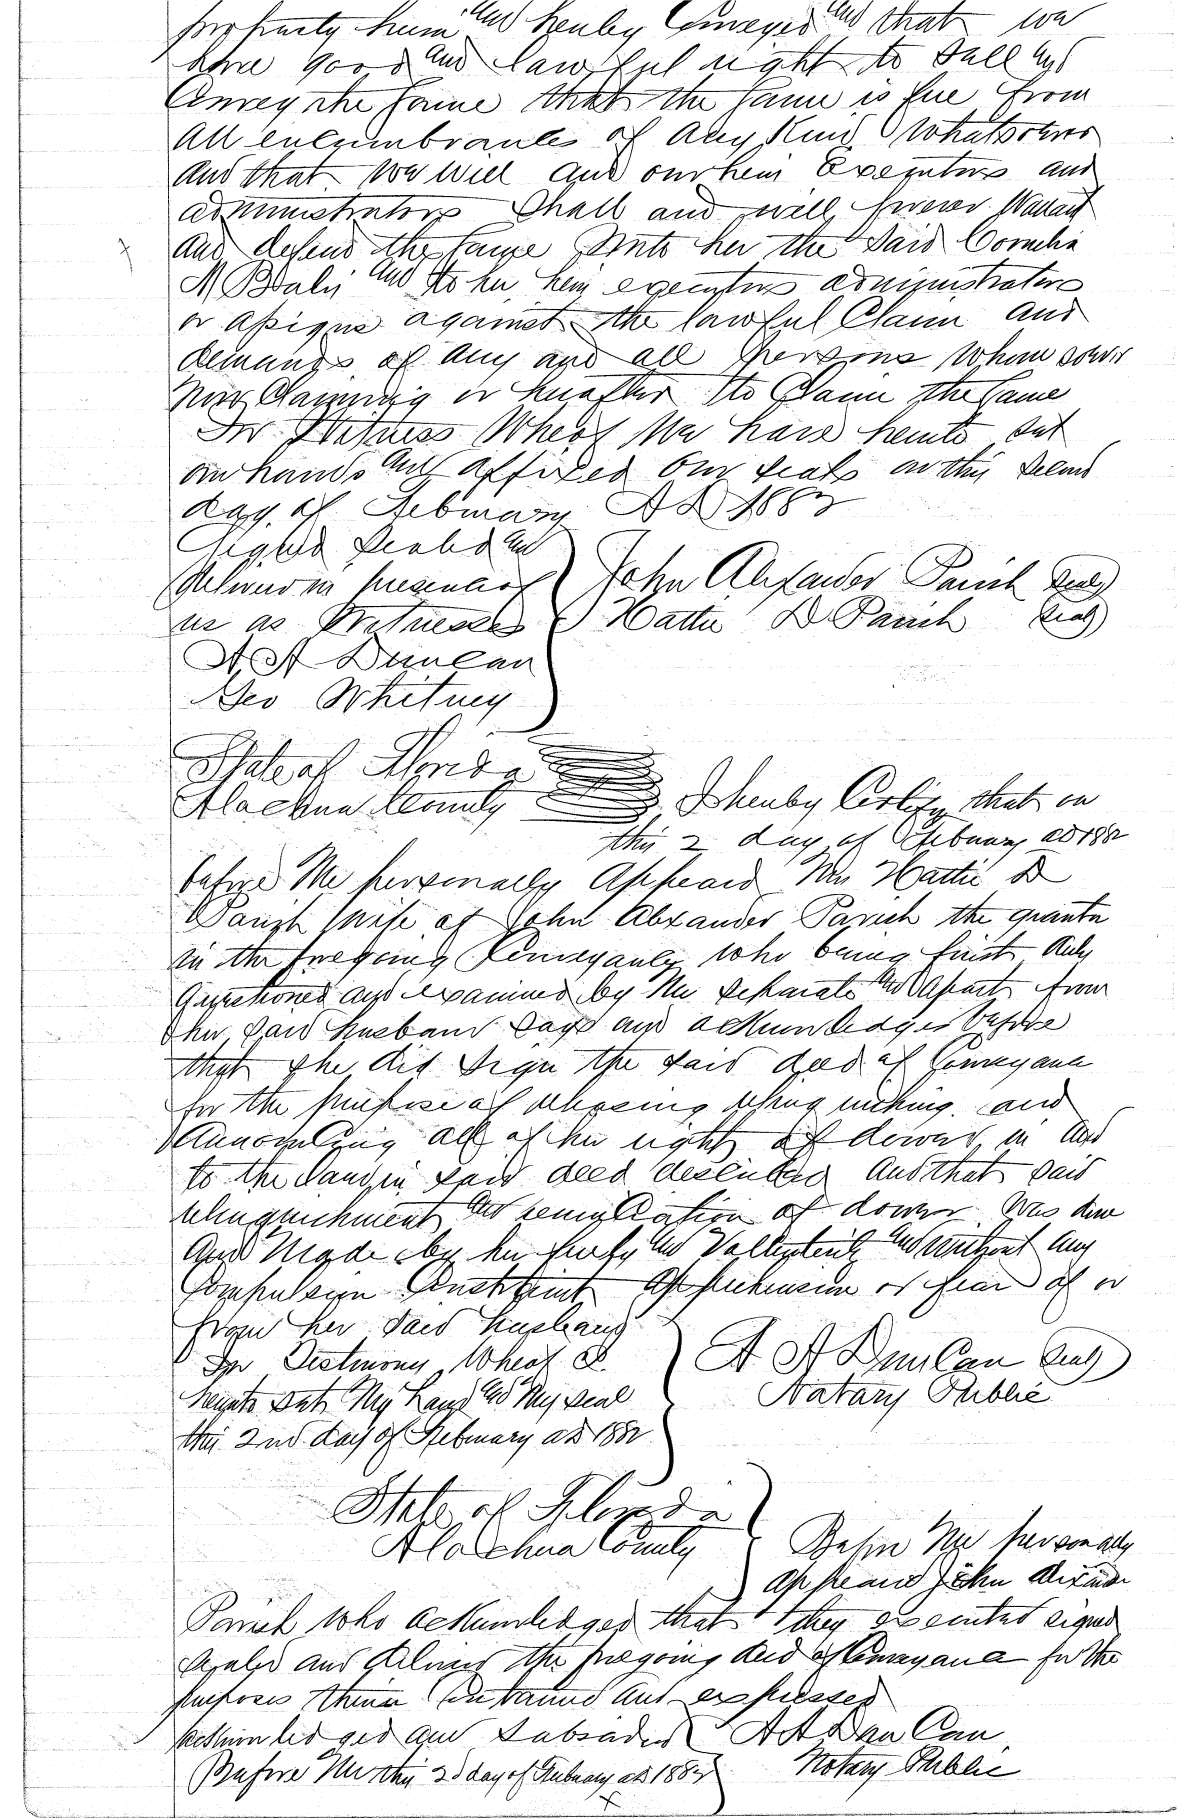 property herein and hereby Conveyed and that we
have good and lawful right to Sell and
Convey the Same that the Same is free from
All encumbrances of Any Kind Whatsoever
And that we will and our heirs Executors and
administrators Shall and will forever Warrant
And defend the Same Unto her the Said Cornelia
M and to her heirs executors administrators
or assigns against the lawful Claim and
demands of Any and all Persons Whomsoever
Now Claiming or hereafter to Claim the Same
In Witness Whereof We have hereunto Set
our hands and Affixed Our Seals on this Second
day of February AD 1882
Signed Sealed and
delivered in presence of
us as Witnesses
John Alexander Parish Seal
Hattie D Parish Seal
A A Duncan
Geo Whitney
State of Florida
Alachua County I hereby Certify that on
this 2 day of February AD 1882
before Me personally Appeard Mrs Hattie D
Parish Wife of John Alexander Parish the grantor
in the foregoing Conveyance Who being first duly
Questioned and examined by Me Separate and Apart from
her Said husband Says and acknowledges before
that She did Sign the Said deed of Conveyance
for the purpose of releasing relinquishing and
Renouncing all of her right of dower in and
to the Land in Said deed described And that Said
relinquishment and renunciation of dower Was done
And Made by her freely and and without any
Compulsion Constraint Apprehension or fear of or
from her Said husband
In Testimony Whereof I
hereunto Set My hand and My Seal
this 2nd day of February AD 1882
A A Duncan Seal
Notary Public
State of Florida
Alachua County Before Me personally
appeared John Alexander
Parish Who acknowledged that they executed signed
Sealed and delivered the foregoing deed of Conveyance for the
purposes therein Contained and expressed
acknowledged and Subscribed
Before Me this 2d day of February AD 1882
A A Duncan
Notary Public